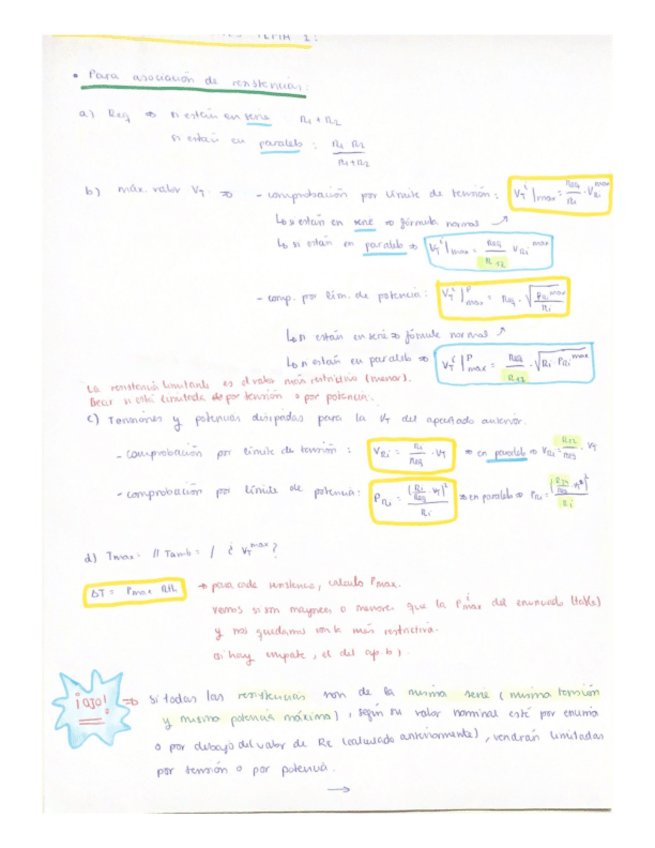 TEMA 1:
• Para asociación de resistencias:
a) Req ⇒ si están en serie R1 + R2
si están en paralelo : R1 R2 / R1+R2
b) máx. valor VT ⇒ - comprobación por límite de tensión : VT^i |max = Req/Ri · VRi^max
↳ si están en serie ⇒ fórmula normal ↗
↳ si están en paralelo ⇒ VT^i |max = Req/R12 VRi^max
- comp. por lim. de potencia : VT^i |max^P = Req · √(PRi^max/Ri)
↳ si están en serie ⇒ fórmula normal ↗
↳ si están en paralelo ⇒ VT^i |max^P = Req/R12 · √(Ri · PRi^max)
La resistencia limitante es el valor más restrictivo (menor).
Decir si está limitada por tensión o por potencia.
c) Tensiones y potencias disipadas para la VT del apartado anterior.
- comprobación por límite de tensión : VRi = Ri/Req · VT ⇒ en paralelo ⇒ VRi = R12/Req · VT
- comprobación por límite de potencia : PRi = (Ri/Req · VT)²/Ri ⇒ en paralelo ⇒ PRi =
d) Tmax = // Tamb = / ¿ VT^max ?
ΔT = Pmax Rth → para cada resistencia, calculo Pmax.
vemos si son mayores o menores que la P^i max del enunciado (tabla)
y nos quedamos con la más restrictiva.
si hay empate, el del ap b).
¡OJO! ⇒ si todas las resistencias son de la misma serie (misma tensión
y misma potencia máxima), según su valor nominal esté por encima
o por debajo del valor de Rc (calculado anteriormente), vendrán limitadas
por tensión o por potencia.
→